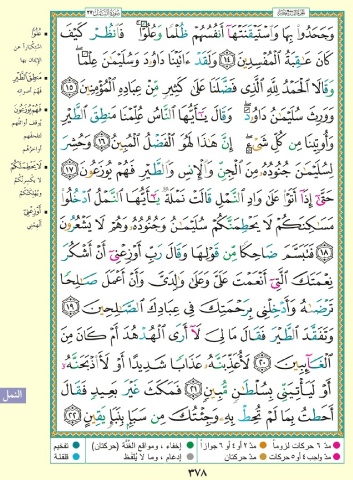 وَجَحَدُوا۟ بِهَا وَٱسْتَيْقَنَتْهَآ أَنفُسُهُمْ ظُلْمًا وَعُلُوًّا ۚ فَٱنظُرْ كَيْفَ
كَانَ عَـٰقِبَةُ ٱلْمُفْسِدِينَ ١٤ وَلَقَدْ ءَاتَيْنَا دَاوُۥدَ وَسُلَيْمَـٰنَ عِلْمًا ۖ
وَقَالَا ٱلْحَمْدُ لِلَّهِ ٱلَّذِى فَضَّلَنَا عَلَىٰ كَثِيرٍ مِّنْ عِبَادِهِ ٱلْمُؤْمِنِينَ ١٥
وَوَرِثَ سُلَيْمَـٰنُ دَاوُۥدَ ۖ وَقَالَ يَـٰٓأَيُّهَا ٱلنَّاسُ عُلِّمْنَا مَنطِقَ ٱلطَّيْرِ
وَأُوتِينَا مِن كُلِّ شَىْءٍ ۖ إِنَّ هَـٰذَا لَهُوَ ٱلْفَضْلُ ٱلْمُبِينُ ١٦ وَحُشِرَ
لِسُلَيْمَـٰنَ جُنُودُهُۥ مِنَ ٱلْجِنِّ وَٱلْإِنسِ وَٱلطَّيْرِ فَهُمْ يُوزَعُونَ ١٧
حَتَّىٰٓ إِذَآ أَتَوْا۟ عَلَىٰ وَادِ ٱلنَّمْلِ قَالَتْ نَمْلَةٌ يَـٰٓأَيُّهَا ٱلنَّمْلُ ٱدْخُلُوا۟
مَسَـٰكِنَكُمْ لَا يَحْطِمَنَّكُمْ سُلَيْمَـٰنُ وَجُنُودُهُۥ وَهُمْ لَا يَشْعُرُونَ
١٨ فَتَبَسَّمَ ضَاحِكًا مِّن قَوْلِهَا وَقَالَ رَبِّ أَوْزِعْنِىٓ أَنْ أَشْكُرَ
نِعْمَتَكَ ٱلَّتِىٓ أَنْعَمْتَ عَلَىَّ وَعَلَىٰ وَٰلِدَىَّ وَأَنْ أَعْمَلَ صَـٰلِحًا
تَرْضَىٰهُ وَأَدْخِلْنِى بِرَحْمَتِكَ فِى عِبَادِكَ ٱلصَّـٰلِحِينَ ١٩
وَتَفَقَّدَ ٱلطَّيْرَ فَقَالَ مَا لِىَ لَآ أَرَى ٱلْهُدْهُدَ أَمْ كَانَ مِنَ
ٱلْغَآئِبِينَ ٢٠ لَأُعَذِّبَنَّهُۥ عَذَابًا شَدِيدًا أَوْ لَأَا۟ذْبَحَنَّهُۥٓ
أَوْ لَيَأْتِيَنِّى بِسُلْطَـٰنٍ مُّبِينٍ ٢١ فَمَكَثَ غَيْرَ بَعِيدٍ فَقَالَ
أَحَطتُ بِمَا لَمْ تُحِطْ بِهِۦ وَجِئْتُكَ مِن سَبَإٍۭ بِنَبَإٍ يَقِينٍ ٢٢
عُلُوًّا
استكبارًا عن
الإيمان بها
مَنطِقَ الطَّيْرِ
فهم أصواته
فَهُمْ يُوزَعُونَ
لَا يَحْطِمَنَّكُمْ
لا يكسرنّكم
ويهلكنّكم
أَوْزِعْنِي
ألهمني
النمل
مدّ ٦ حركات لزوماً
مدّ ٢ أو ٤ أو ٦ جوازاً
إخفاء، ومواقع الغُنَّة (حركتان)
تفخيم
مدّ واجب ٤ أو ٥ حركات
مدّ حركتان
إدغام، وما لا يُلفَظ
قلقلة
٣٧٨